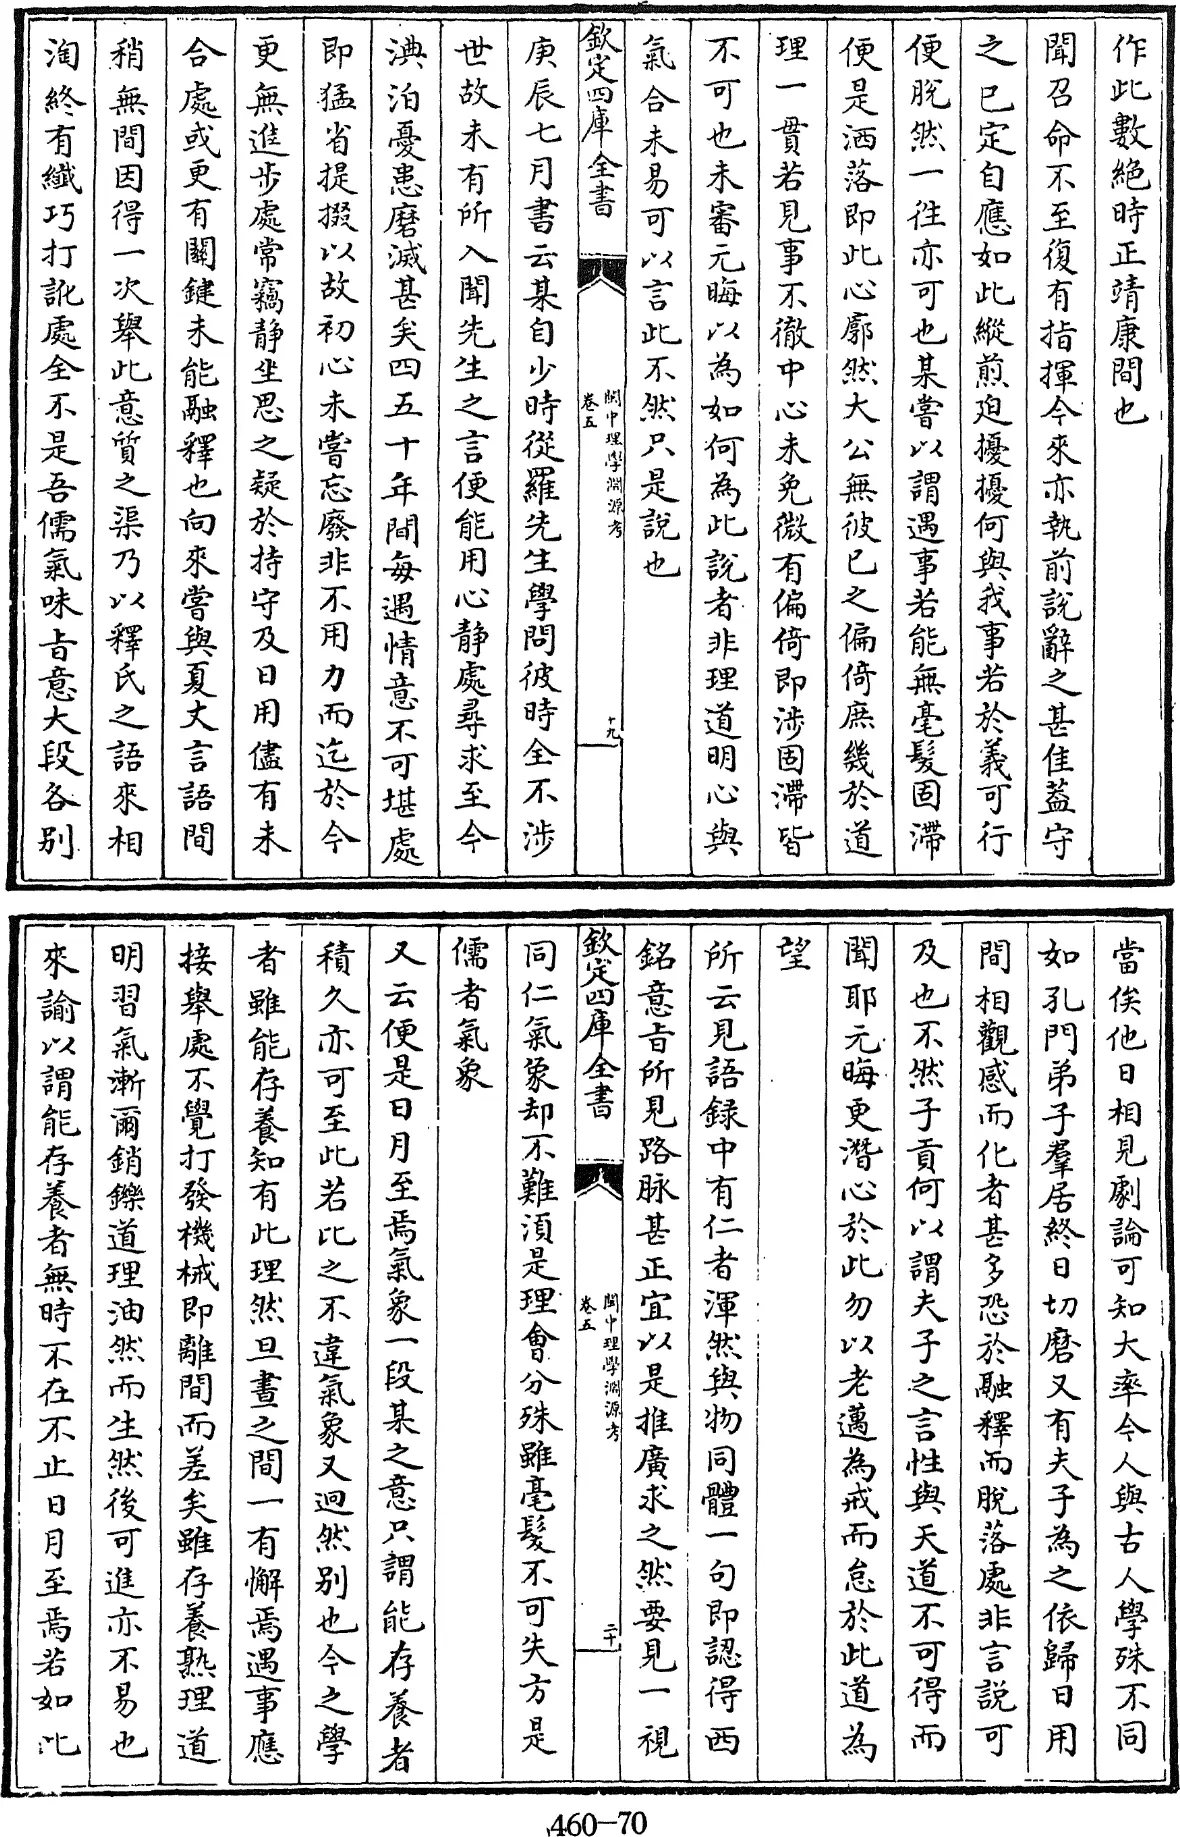 作此數絶時正靖康間也
聞召命不至復有指揮今來亦執前說辭之甚佳蓋守
之已定自應如此縱煎迫擾擾何與我事若於義可行
便脫然一往亦可也某嘗以謂遇事若能無毫髮固滯
便是洒落即此心廓然大公無彼已之偏倚庶幾於道
理一貫若見事不徹中心未免微有偏倚即涉固滯皆
不可也未審元晦以為如何為此說者非理道明心與
氣合未易可以言此不然只是說也
欽定四庫全書
閩中理學淵源考
卷五
十九
庚辰七月書云某自少時從羅先生學問彼時全不涉
世故未有所入聞先生之言便能用心静處尋求至今
淟汨憂患磨滅甚矣四五十年間每遇情意不可堪處
即猛省提掇以故初心未嘗忘廢非不用力而迄於今
更無進步處常竊静坐思之疑於持守及日用儘有未
合處或更有關鍵未能融釋也向來嘗與夏丈言語間
稍無間因得一次舉此意質之渠乃以釋氏之語來相
淘終有纖巧打訛處全不是吾儒氣味旨意大段各别
當俟他日相見劇論可知大率今人與古人學殊不同
如孔門弟子羣居終日切磨又有夫子為之依歸日用
間相觀感而化者甚多恐於融釋而脫落處非言說可
及也不然子貢何以謂夫子之言性與天道不可得而
聞耶元晦更潛心於此勿以老邁為戒而怠於此道為
望
所云見語録中有仁者渾然與物同體一句即認得西
銘意旨所見路脉甚正宜以是推廣求之然要見一視
欽定四庫全書
閩中理學淵源考
卷五
二十
同仁氣象却不難須是理會分殊雖毫髮不可失方是
儒者氣象
又云便是日月至焉氣象一段某之意只謂能存養者
積久亦可至此若比之不違氣象又迥然别也今之學
者雖能存養知有此理然旦晝之間一有懈焉遇事應
接舉處不覺打發機械即離間而差矣雖存養熟理道
明習氣漸爾銷鑠道理油然而生然後可進亦不易也
來諭以謂能存養者無時不在不止日月至焉若如此
460-70